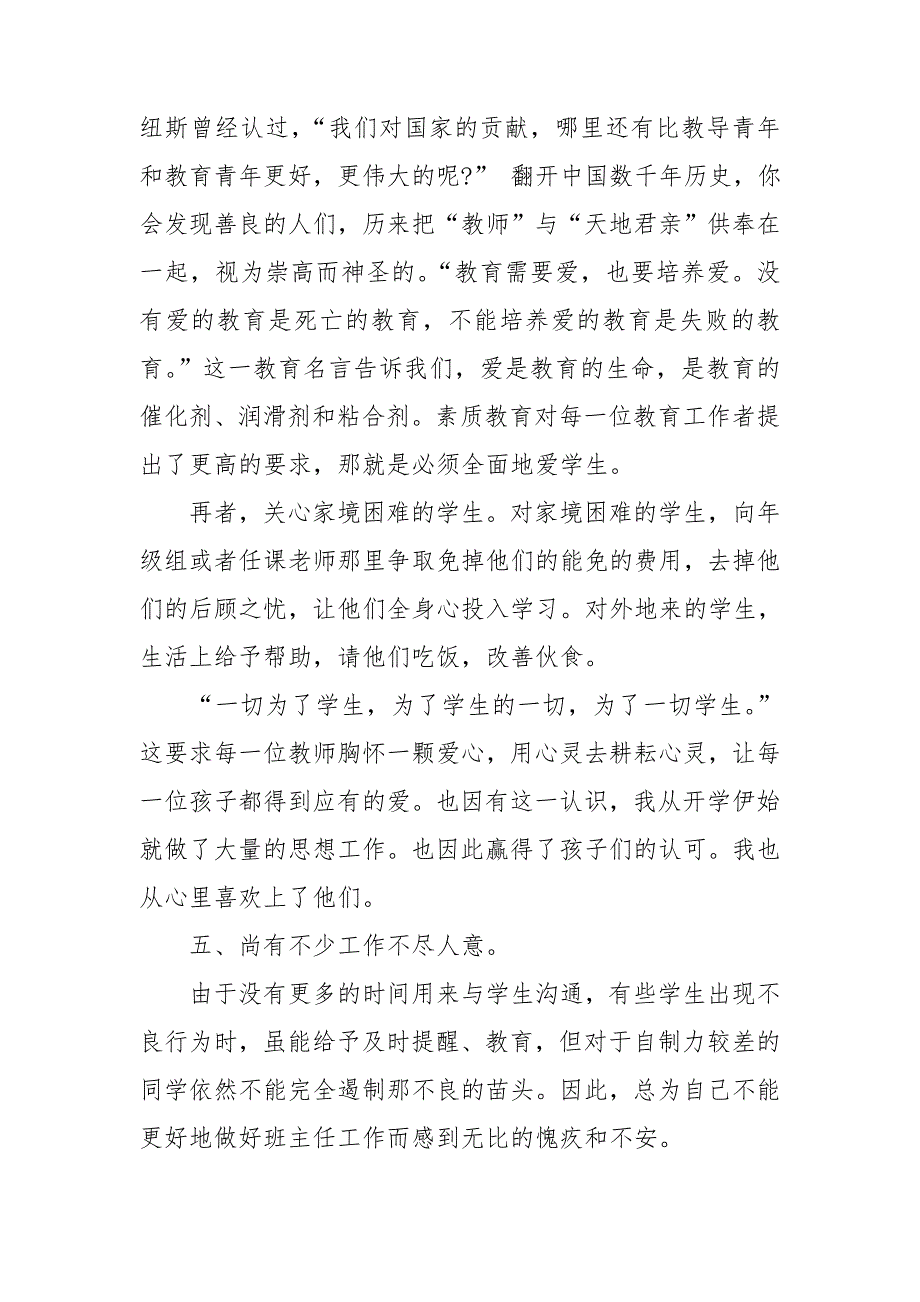 纽斯曾经认过，“我们对国家的贡献，哪里还有比教导青年
和教育青年更好，更伟大的呢?” 翻开中国数千年历史，你
会发现善良的人们，历来把“教师”与“天地君亲”供奉在
一起，视为崇高而神圣的。“教育需要爱，也要培养爱。没
有爱的教育是死亡的教育，不能培养爱的教育是失败的教
育。”这一教育名言告诉我们，爱是教育的生命，是教育的
催化剂、润滑剂和粘合剂。素质教育对每一位教育工作者提
出了更高的要求，那就是必须全面地爱学生。
再者，关心家境困难的学生。对家境困难的学生，向年
级组或者任课老师那里争取免掉他们的能免的费用，去掉他
们的后顾之忧，让他们全身心投入学习。对外地来的学生，
生活上给予帮助，请他们吃饭，改善伙食。
“一切为了学生，为了学生的一切，为了一切学生。”
这要求每一位教师胸怀一颗爱心，用心灵去耕耘心灵，让每
一位孩子都得到应有的爱。也因有这一认识，我从开学伊始
就做了大量的思想工作。也因此赢得了孩子们的认可。我也
从心里喜欢上了他们。
五、尚有不少工作不尽人意。
由于没有更多的时间用来与学生沟通，有些学生出现不
良行为时，虽能给予及时提醒、教育，但对于自制力较差的
同学依然不能完全遏制那不良的苗头。因此，总为自己不能
更好地做好班主任工作而感到无比的愧疚和不安。